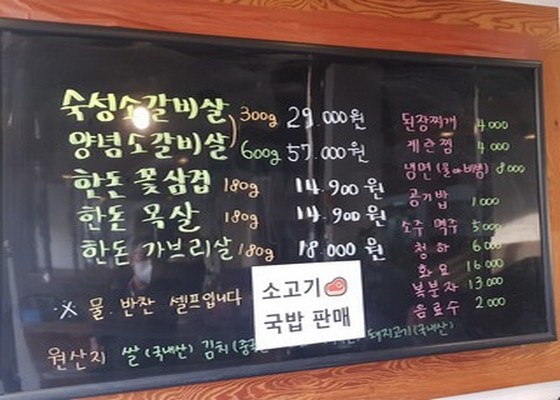 숙성소갈비살 300g 29.000원
양념소갈비살 600g 57.000원
한돈 꽃삼겹 180g 14.900원
한돈 목살 180g 14.900원
한돈 가브리살 180g 18.000원
※ 물. 반찬 셀프입니다
원산지 쌀(국내산) 김치(중국 돼지고기(국내산)
소고기
국밥 판매
된장찌개 4000
계란찜 4000
냉면(물 비빔) 8000
공기밥 1000
소주 맥주 5000
청하 6000
화요 16000
복분자 13000
음료수 2000